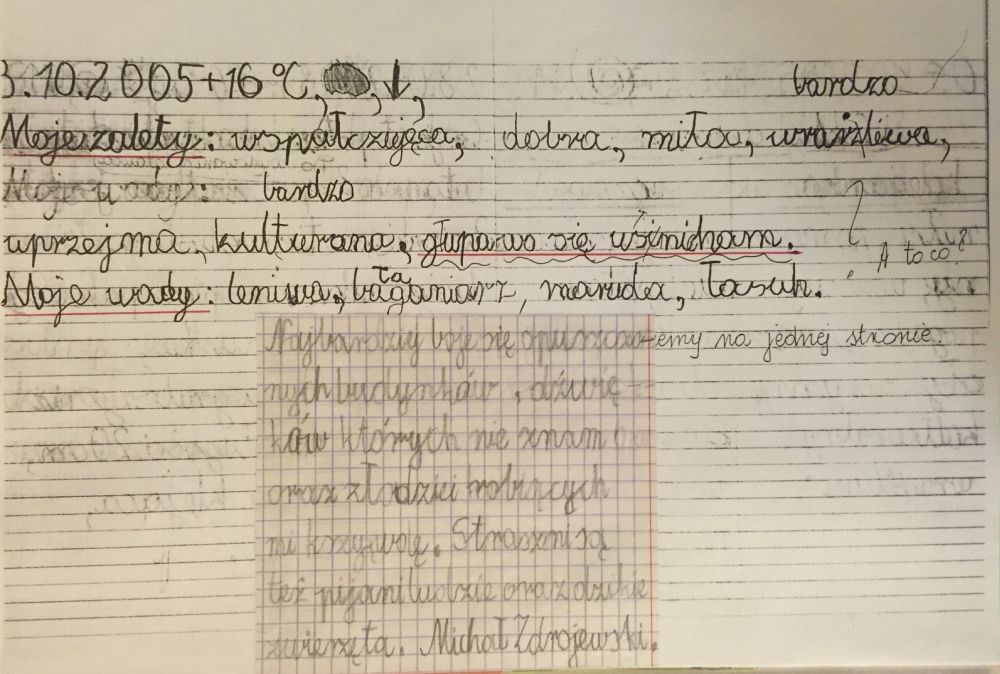 3.10.2005+16°C, , ↓,
bardzo
Moje zalety: współczująca, dobra, miła, wrażliwa,
Moje wady: bardzo
uprzejma, kulturana, głupawo się uśmiecham.
A to co?
ła
Moje wady: leniwa, baganiarz, maruda, łasuch.
Najbardziej boję się opuszczo-emy na jednej stronie.
nych budynków, dźwię-
ków których nie znam
oraz złodziei robiących
mi krzywdę. Straszni są
też pijani ludzie oraz dzikie
zwierzęta. Michał Zdrojewski.